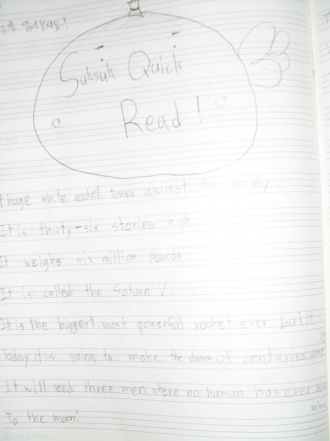 Quick
Read!
A huge white rocket tower against the sky
It is thirty-six stories high
It weighs six million pounds
It is called the Saturn V.
It is the biggest, most powerful rocket ever built
Today it is going to make the dream of centuries
It will send three men where no human has ever
To the moon!